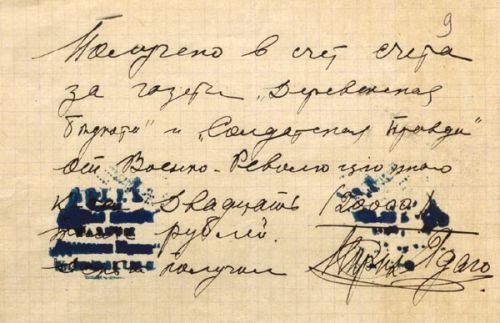 9
Получено в счет счета
за газеты „Деревенская
Беднота" и „Солдатская Правда"
от Военно-Революционного
К-та Двадцать (20000)
рублей.
получил